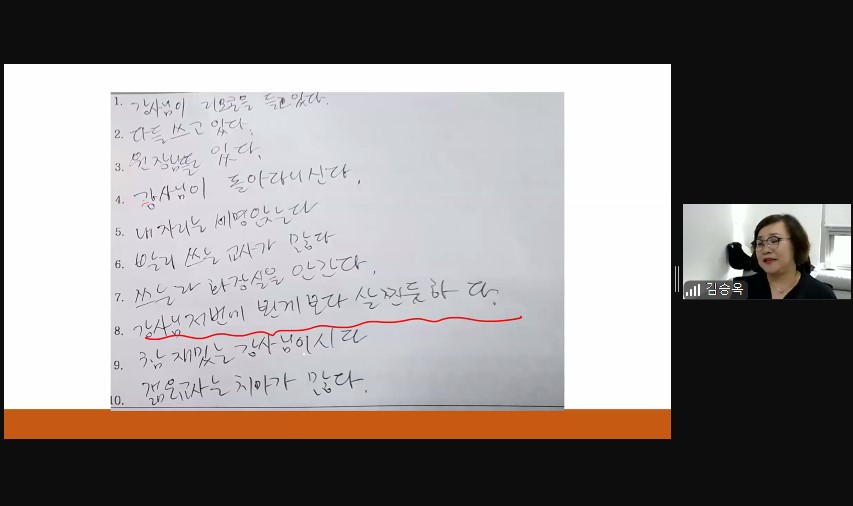 1. 강사님이 리모콘을 들고있다.
2. 다들 쓰고 있다.
3. 원장님들 있다.
4. 강사님이 돌아다니신다.
5. 내자리는 세명앉는다
6. 빨리 쓰는 교사가 많다
7. 쓰느라 화장실을 안간다.
8. 강사님저번에 뵌게보다 살찐듯하다.
9. 참 재밌는 강사님이시다
10. 젊은교사는 치마가 많다.
김승옥